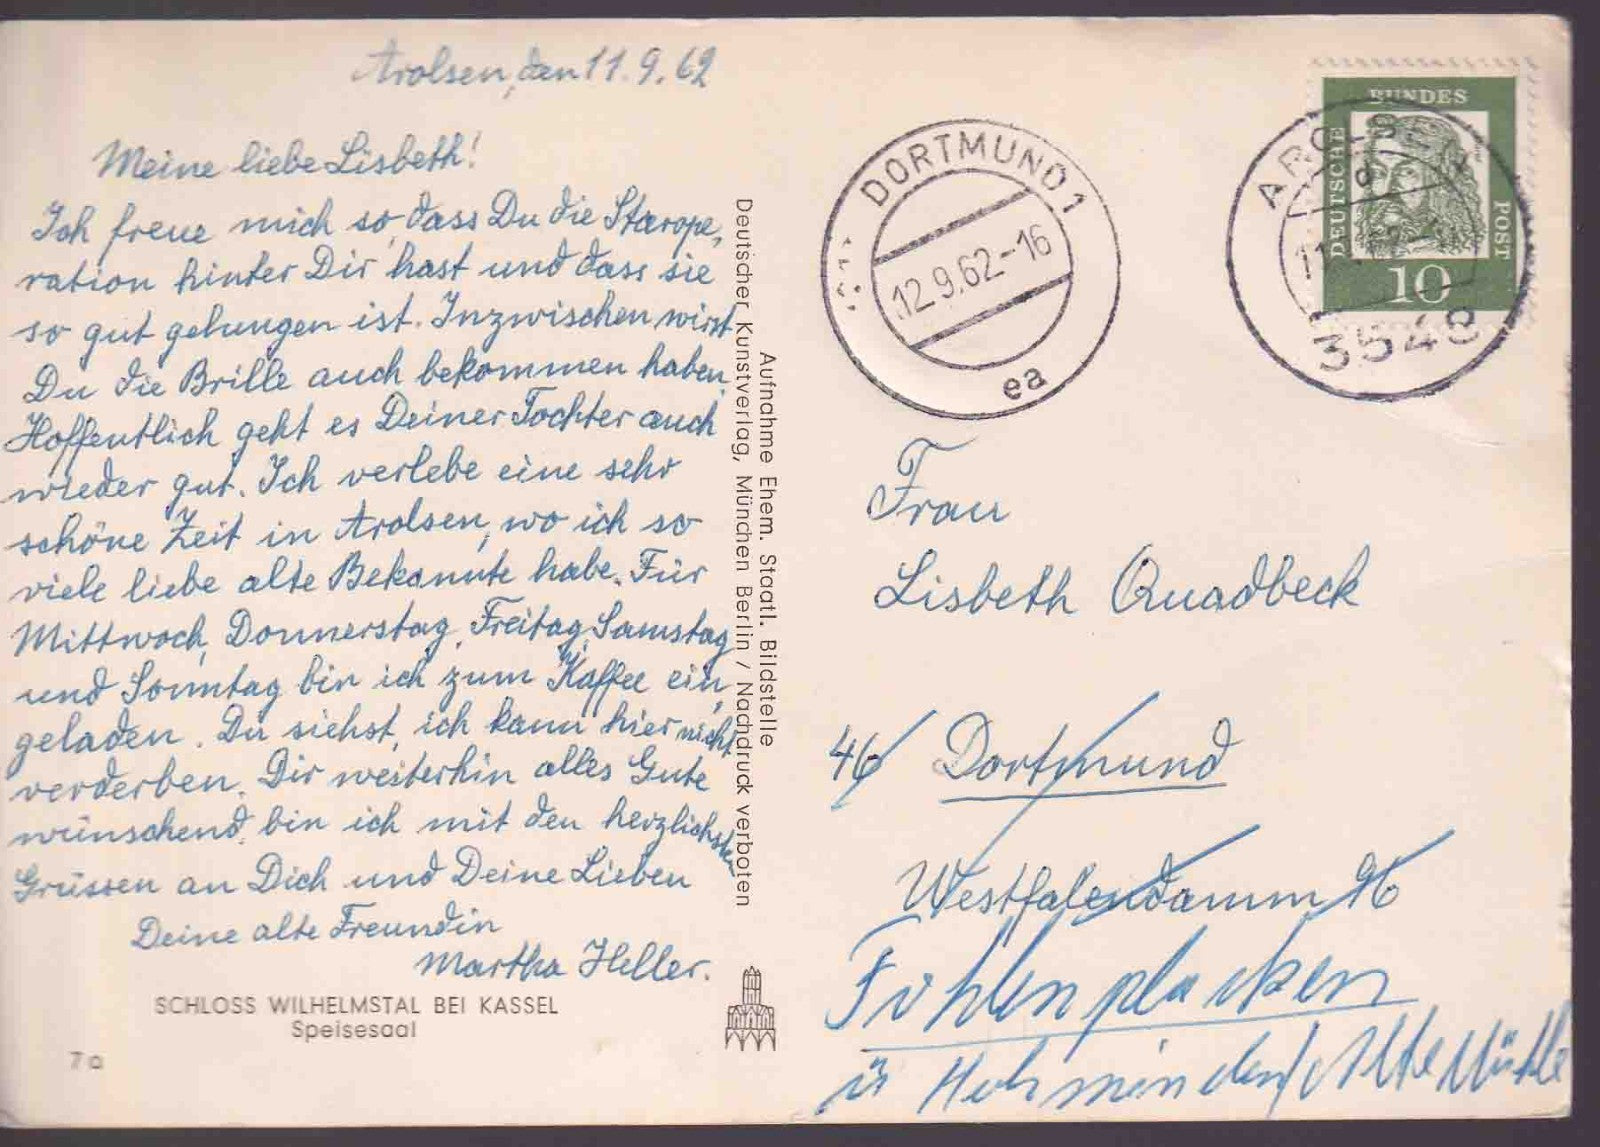 Arolsen, den 11.9.62
Meine liebe Lisbeth!
Ich freue mich so, dass Du die Starope,
ration hinter Dir hast und dass sie
so gut gelungen ist. Inzwischen wirst
Du die Brille auch bekommen haben.
Hoffentlich geht es Deiner Tochter auch
wieder gut. Ich verlebe eine sehr
schöne Zeit in Arolsen, wo ich so
viele liebe alte Bekannte habe. Für
Mittwoch, Donnerstag, Freitag, Samstag
und Sonntag bin ich zum Kaffee ein,
geladen. Du siehst, ich kann hier nicht
verderben. Dir weiterhin alles Gute
wünschend, bin ich mit den herzlichsten
Grüssen an Dich und Deine Lieben
Deine alte Freundin
Martha Heller.
SCHLOSS WILHELMSTAL BEI KASSEL
Speisesaal
7a
Deutscher Kunstverlag, München Berlin / Nachdruck verboten
Aufnahme Ehem. Staatl. Bildstelle
DORTMUND 1
12.9.62-16
ea
AROLSEN
3548
DEUTSCHE
BUNDES
POST
10
Frau
Lisbeth Quadbeck
46 Dortmund
Westfalendamm 96
Fohlenplacken
ü Holzminden/Alte Mühle